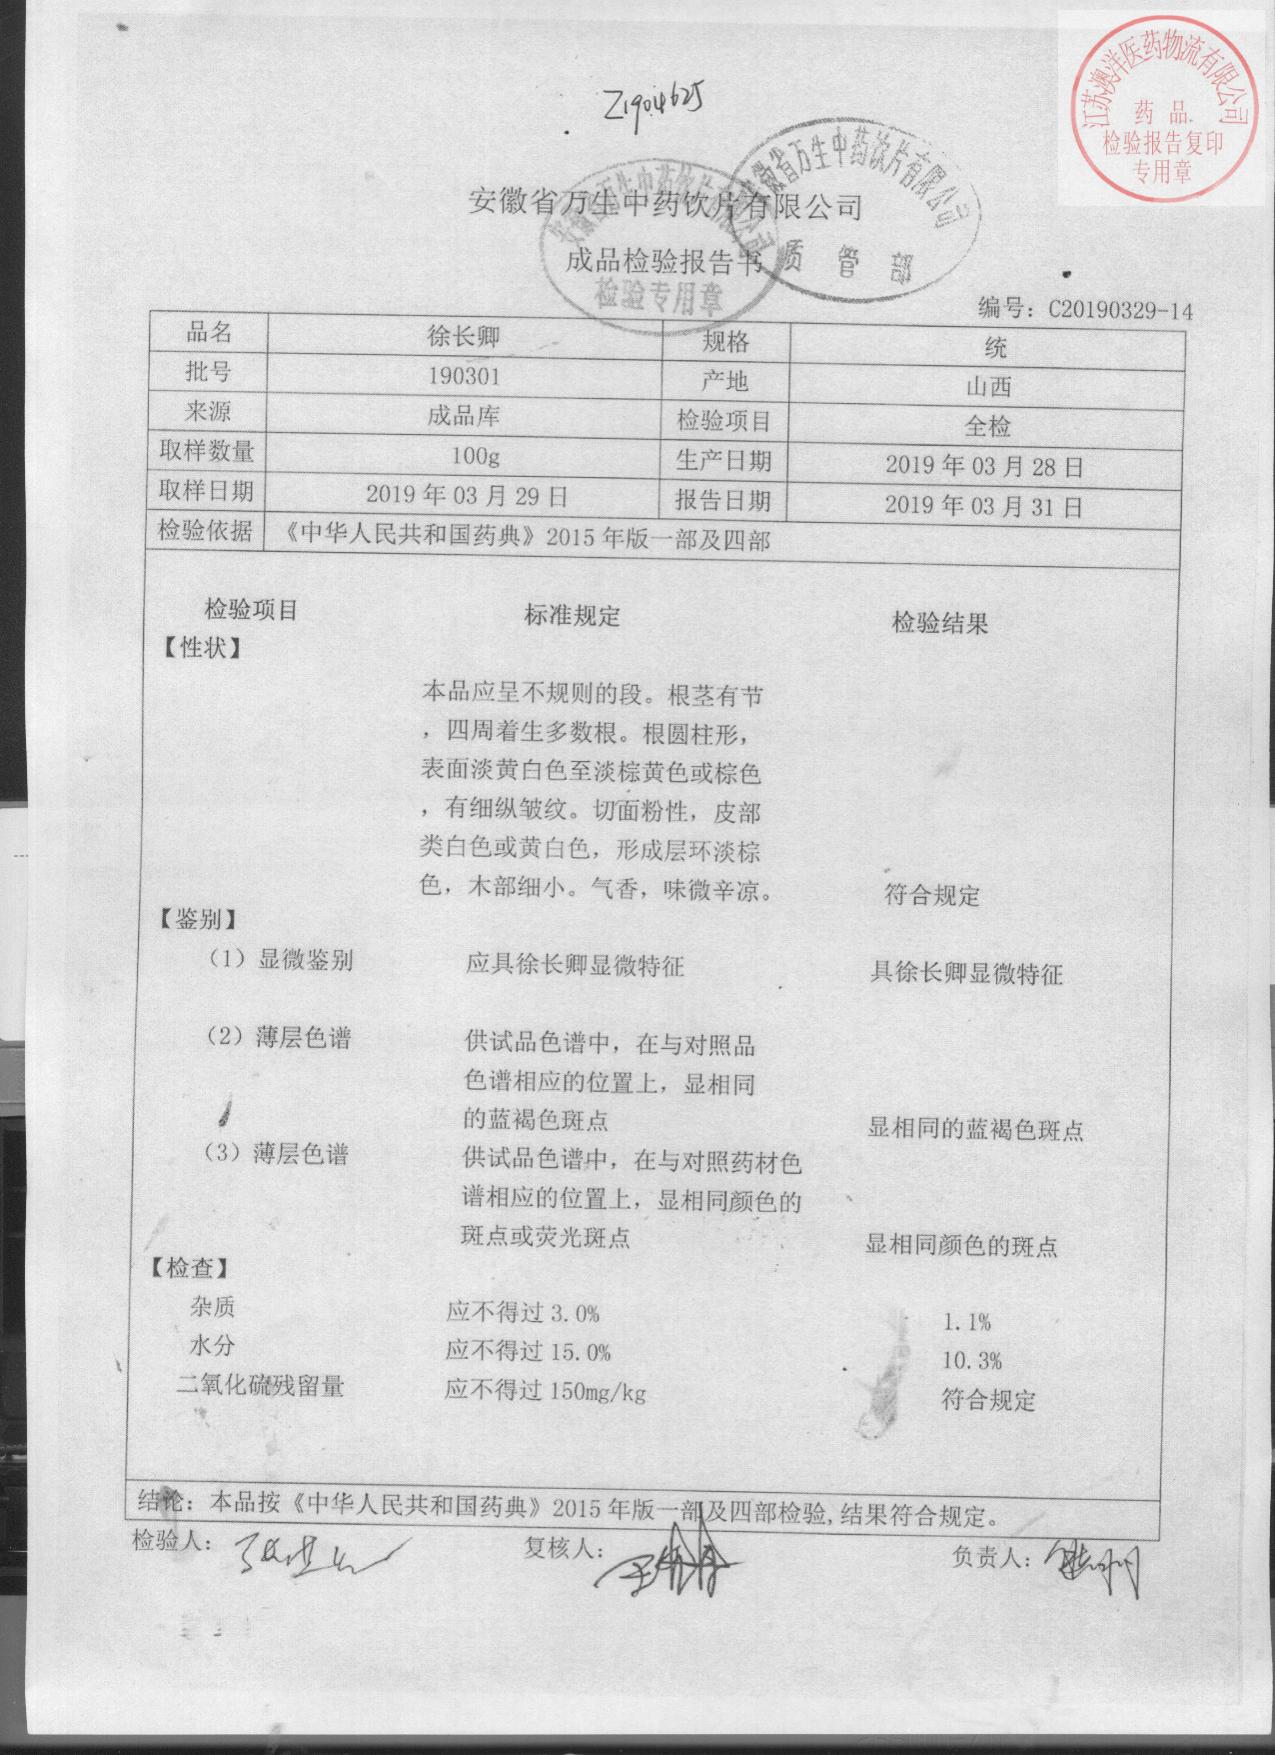 江苏澳洋医药物流有限公司
药品
检验报告复印
专用章
Z1904625
安徽省万生中药饮片有限公司
质管部
安徽省万生中药饮片有限公司
成品检验报告书
检验专用章
编号：C20190329-14
品名 徐长卿 规格 统
批号 190301 产地 山西
来源 成品库 检验项目 全检
取样数量 100g 生产日期 2019 年 03 月 28 日
取样日期 2019 年 03 月 29 日 报告日期 2019 年 03 月 31 日
检验依据 《中华人民共和国药典》2015 年版一部及四部
检验项目 标准规定 检验结果
【性状】
本品应呈不规则的段。根茎有节
，四周着生多数根。根圆柱形，
表面淡黄白色至淡棕黄色或棕色
，有细纵皱纹。切面粉性，皮部
类白色或黄白色，形成层环淡棕
色，木部细小。气香，味微辛凉。 符合规定
【鉴别】
（1）显微鉴别 应具徐长卿显微特征 具徐长卿显微特征
（2）薄层色谱 供试品色谱中，在与对照品
色谱相应的位置上，显相同
的蓝褐色斑点 显相同的蓝褐色斑点
（3）薄层色谱 供试品色谱中，在与对照药材色
谱相应的位置上，显相同颜色的
斑点或荧光斑点 显相同颜色的斑点
【检查】
杂质 应不得过 3.0% 1.1%
水分 应不得过 15.0% 10.3%
二氧化硫残留量 应不得过 150mg/kg 符合规定
结论：本品按《中华人民共和国药典》2015 年版一部及四部检验,结果符合规定。
检验人： 复核人： 负责人：